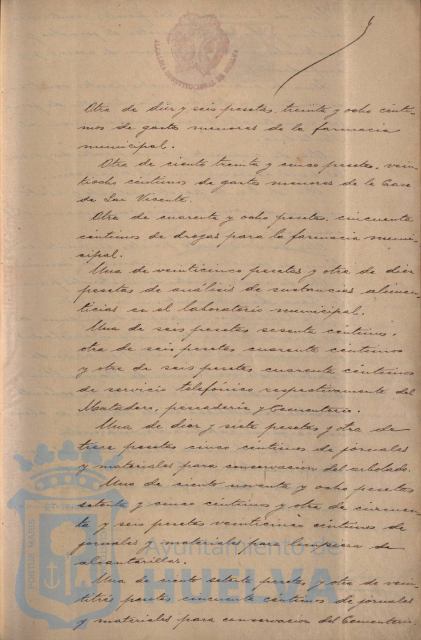 ALCALDIA CONSTITUCIONAL DE HUELVA
Otra de diez y seis pesetas, treinta y ocho cénti-
mos de gastos menores de la farmacia
municipal.
Otra de ciento treinta y cinco pesetas, vein-
tiocho céntimos de gastos menores de la Casa
de San Vicente.
Otra de cuarenta y ocho pesetas, cincuenta
céntimos de drogas para la farmacia muni-
cipal.
Una de veinticinco pesetas y otra de diez
pesetas de análisis de sustancias alimen-
ticias en el laboratorio municipal.
Una de seis pesetas sesenta céntimos,
otra de seis pesetas cuarenta céntimos
y otra de seis pesetas cuarenta céntimos
de servicio telefónico respectivamente del
Matadero, pescadería y Cementerio.
Una de diez y siete pesetas y otra de
trece pesetas cinco céntimos de jornales
y materiales para conservacion del arbolado.
Una de ciento noventa y ocho pesetas
setenta y cinco céntimos y otra de cuaren-
ta y seis pesetas veinticinco céntimos de
jornales y materiales para limpieza de
alcantarillas.
Una de ciento setenta pesetas y otra de vein-
titrés pesetas cincuenta céntimos de jornales
y materiales para conservacion del Cementerio.
PORTUS MARIS
Ayuntamiento de
HUELVA